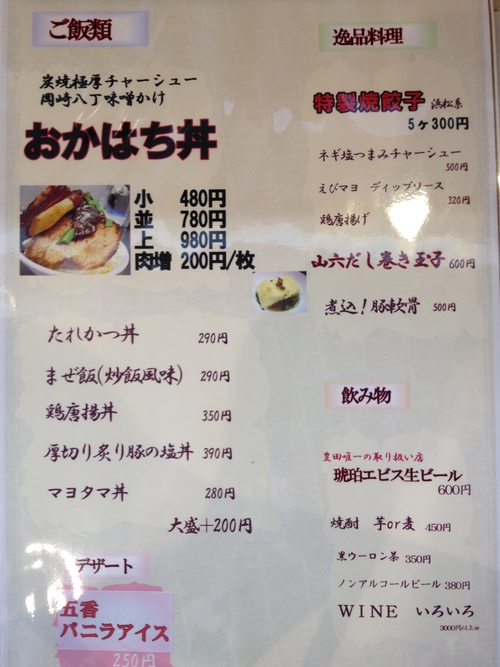 ご飯類
炭焼極厚チャーシュー
岡崎八丁味噌かけ
おかはち丼
小 480円
並 780円
上 980円
肉増 200円/枚
たれかつ丼 290円
まぜ飯(炒飯風味) 290円
鶏唐揚丼 350円
厚切り炙り豚の塩丼 390円
マヨタマ丼 280円
大盛+200円
デザート
五香
バニラアイス
250円
逸品料理
特製焼餃子 浜松系
5ヶ300円
ネギ塩つまみチャーシュー
500円
えびマヨ ディップソース
320円
鶏唐揚げ
山六だし巻き玉子 600円
煮込!豚軟骨 500円
飲み物
豊田唯一の取り扱い店
琥珀エビス生ビール
600円
焼酎 芋or麦 450円
黒ウーロン茶 350円
ノンアルコールビール 380円
WINE いろいろ
3000円以上w